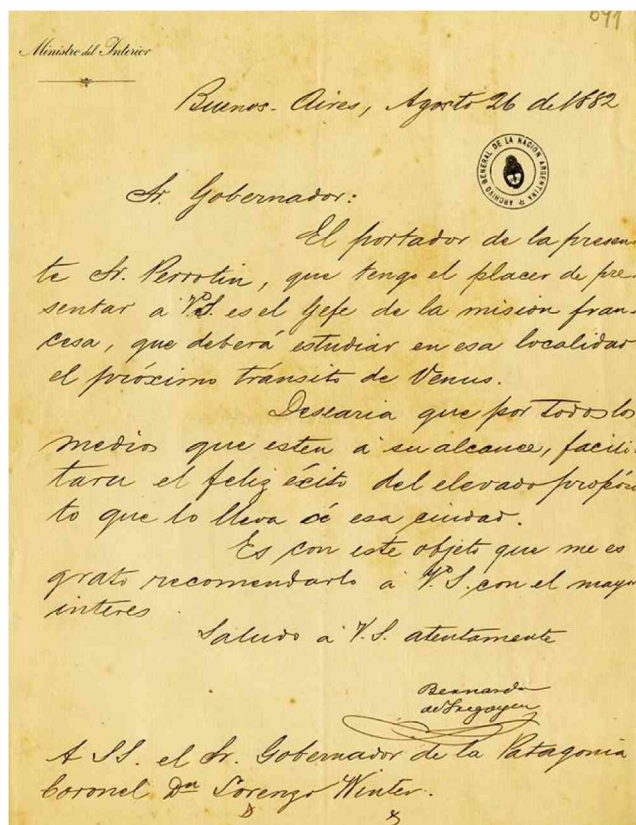 641
Ministro del Interior
Buenos-Aires, Agosto 26 de 1882
ARCHIVO GENERAL DE LA NACION ARGENTINA
Sr. Gobernador:
El portador de la presen-
te Sr. Perrotin, que tengo el placer de pre-
sentar a V.S. es el Gefe de la mision fran-
cesa, que deberá estudiar en esa localidad
el próximo tránsito de Venus.
Desearia que por todos los
medios que esten á su alcance, facili-
tara el feliz éxito del elevado propósi
to que lo lleva á esa ciudad.
Es con este objeto que me es
grato recomendarlo á V.S. con el mayor
interes
Saludo á V.S. atentamente
Bernardo
de Irigoyen
A SS. el Sr. Gobernador de la Patagonia
Coronel Dn Lorenzo Winter.